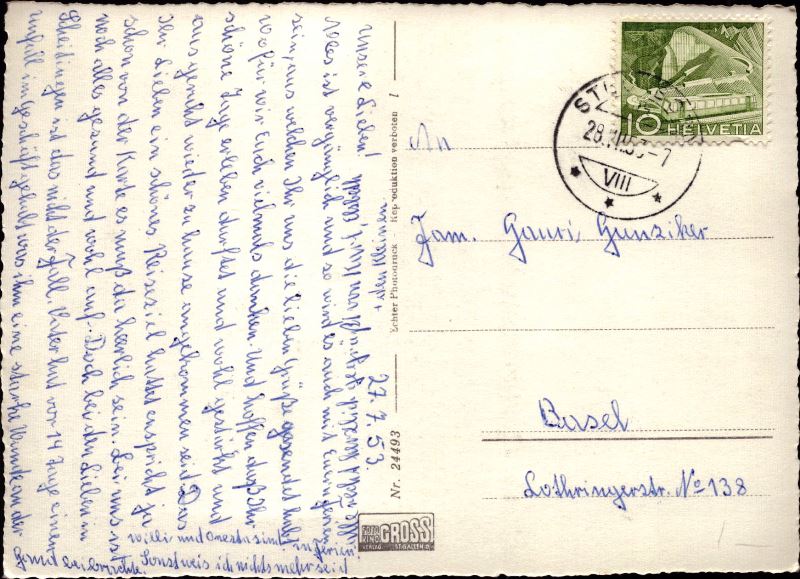 27. 7. 53
Unsere Lieben!
Alles ist vergänglich und so wird es auch mit Euren Ferien
sein, aus welchen Ihr uns die lieben Grüße gesendet habt
wofür wir Euch vielmals danken und hoffen daß Ihr
schöne Tage erleben durftet und wohl gestärkt und
ausgeruht wieder zu hause angekommen seid. Das
Ihr Lieben ein schönes Reiseziel hattet entspricht ja
schon von der Karte es muß da herrlich sein. Bei uns ist
noch alles gesund und wohl auf. Doch bei den Lieben in
Scheidingen ist das nicht der Fall. Vater hat vor 14 Tage einen
unfall im Geschäft gehabt was ihm eine starke Wunde an der
Hand
Sonst weis ich nichts mehr seid
Willi und sind in Ferien
alle recht herzlich gegrüßt von
+ den Kleinen.
Echter Photodruck - Reproduktion verboten 1
Nr. 24493
FOTO KINO GROSS
VERLAG ST. GALLEN
10 HELVETIA
ST
28. VII. 53 - 7
VIII
An
Fam. Gauri Gunziker
Basel
Lothringerstr. No 138